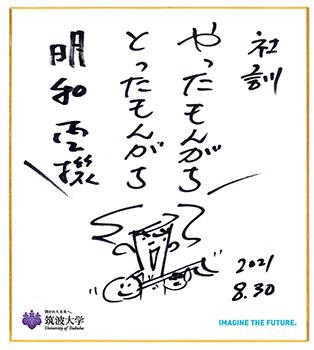 社訓
やったもんがち
とったもんがち
明和電機
2021
8.30
開かれた未来へ。
筑波大学
University of Tsukuba
IMAGINE THE FUTURE.